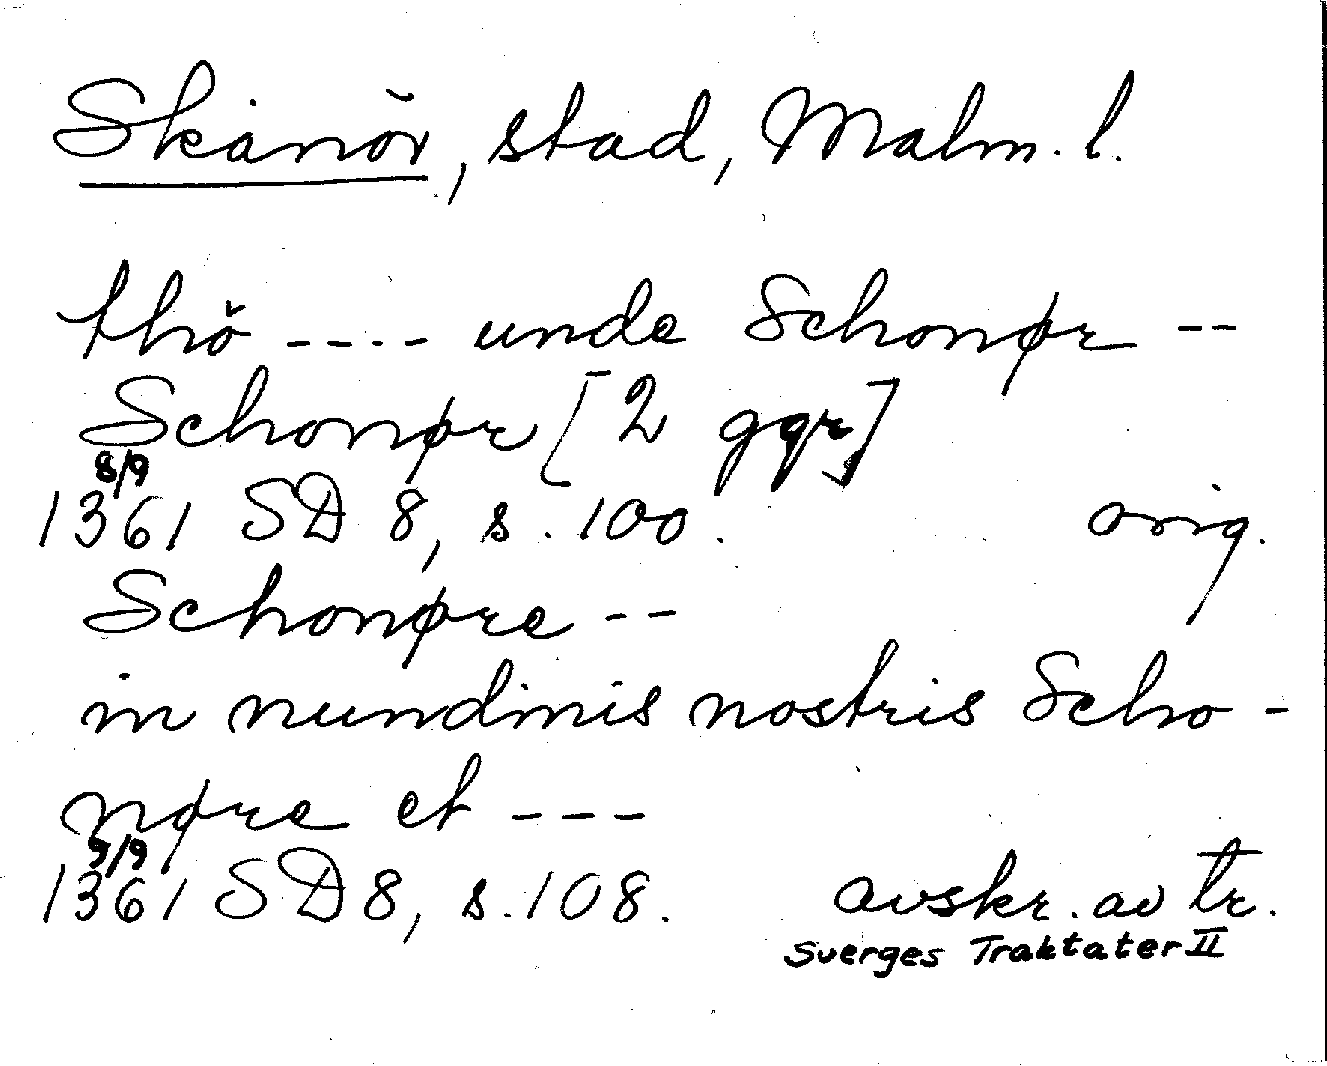 Skanör, stad, Malm. l.
thŏ ---- unde Schonør --
Schonør [2 ggr]
8/9
1361 SD 8, s. 100. orig.
Schonøre --
in nundinis nostris Scho-
nøre et ---
9/9
1361 SD 8, s. 108. avskr. av tr.
Sverges Traktater II